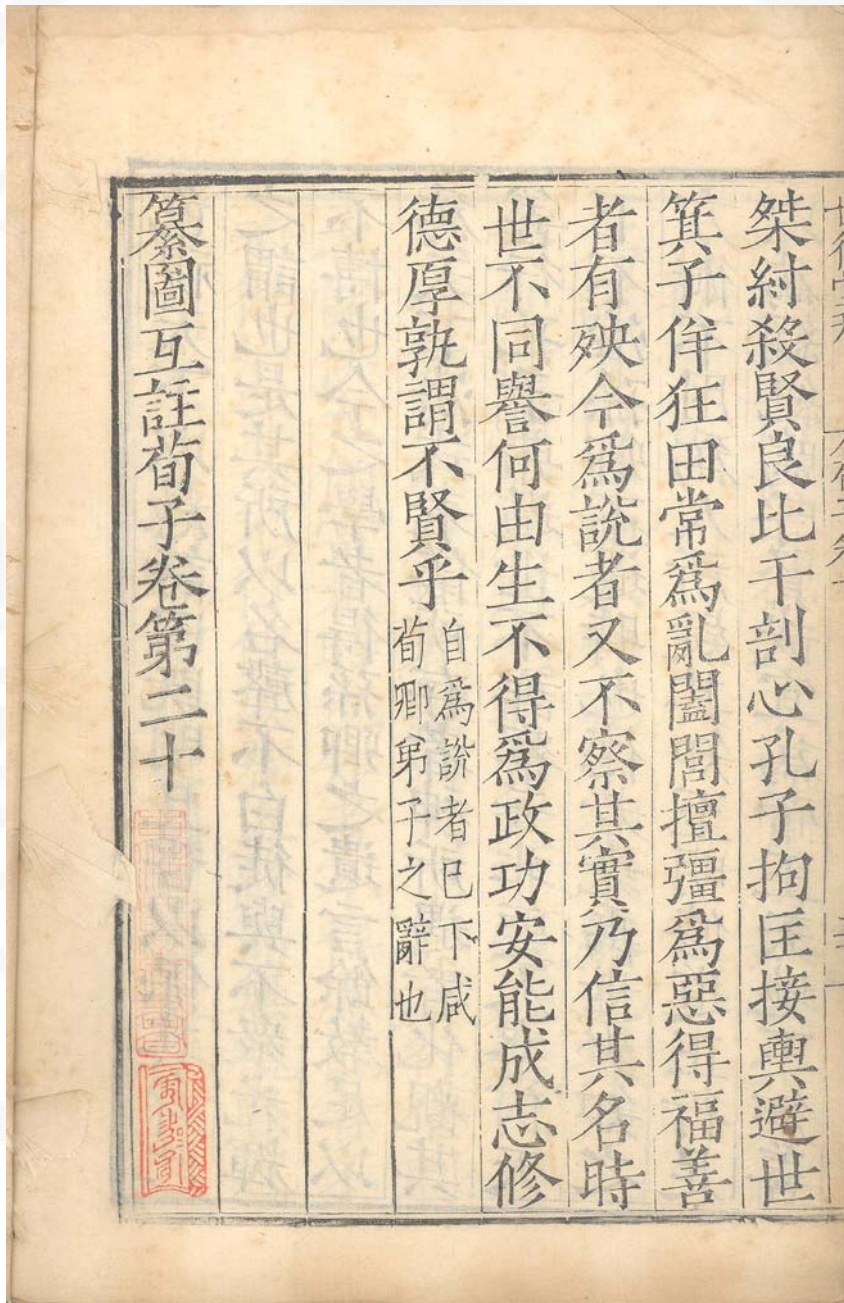 桀紂殺賢良比干剖心孔子拘匡接輿避世
箕子佯狂田常爲亂闔閭擅彊爲惡得福善
者有殃今爲說者又不察其實乃信其名時
世不同譽何由生不得爲政功安能成志修
德厚孰謂不賢乎
自爲說者已下咸
荀卿弟子之辭也
纂圖互註荀子卷第二十